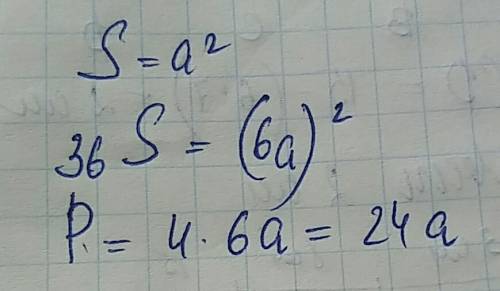 S = a²
36 S = (6a)²
P. = 4 · 6a = 24a